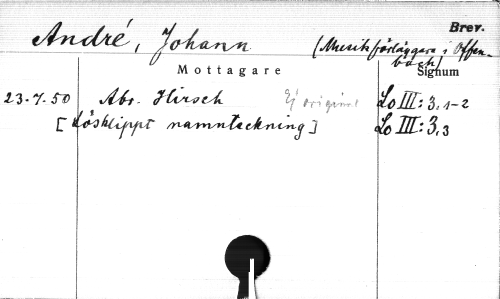 Brev.
André, Johann (Musikförläggare i Offen-
bach)
Mottagare Signum
23.7.50 Abr. Hirsch Ej original Lo III:3,1-2
[Lösklippt namnteckning] Lo III:3,3